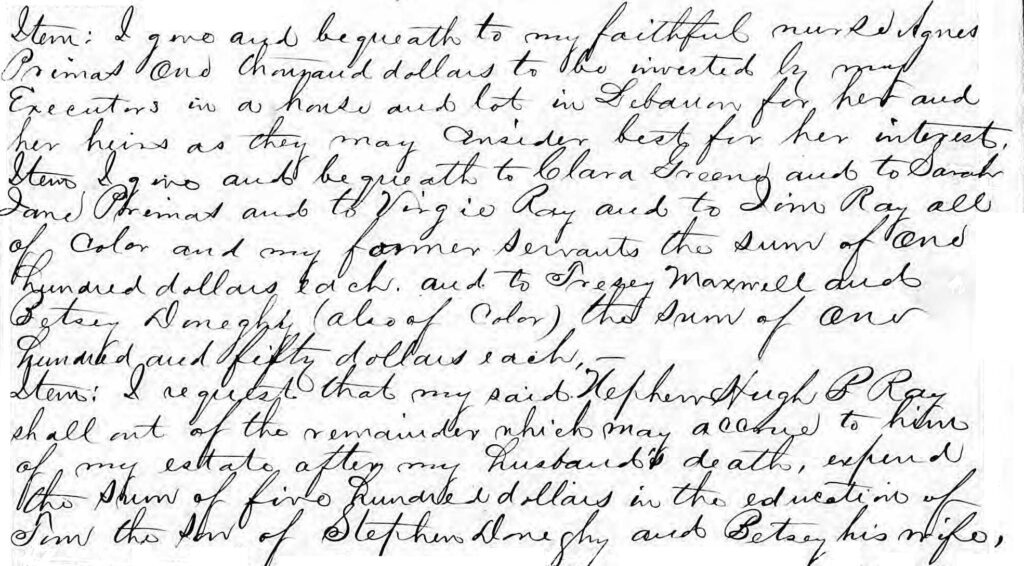 Item: I give and bequeath to my faithful nurse Agnes
Primas One thousand dollars to be invested by my
Executors in a house and lot in Lebanon for her and
her heirs as they may Consider best for her interest.
Item I give and bequeath to Clara Greene and to Sarah
Jane Primas and to Virgie Ray and to Jim Ray all
of Color and my former servants the sum of One
hundred dollars each. and to Maxwell and
Betsey Doneghy (also of Color) the sum of One
hundred and fifty dollars each, —
Item: I request that my said Nephew Hugh P Ray
shall out of the remainder which may accrue to him
of my estate after my husband's death, expend
the sum of five hundred dollars in the education of
Tom the son of Stephen Doneghy and Betsey his wife,